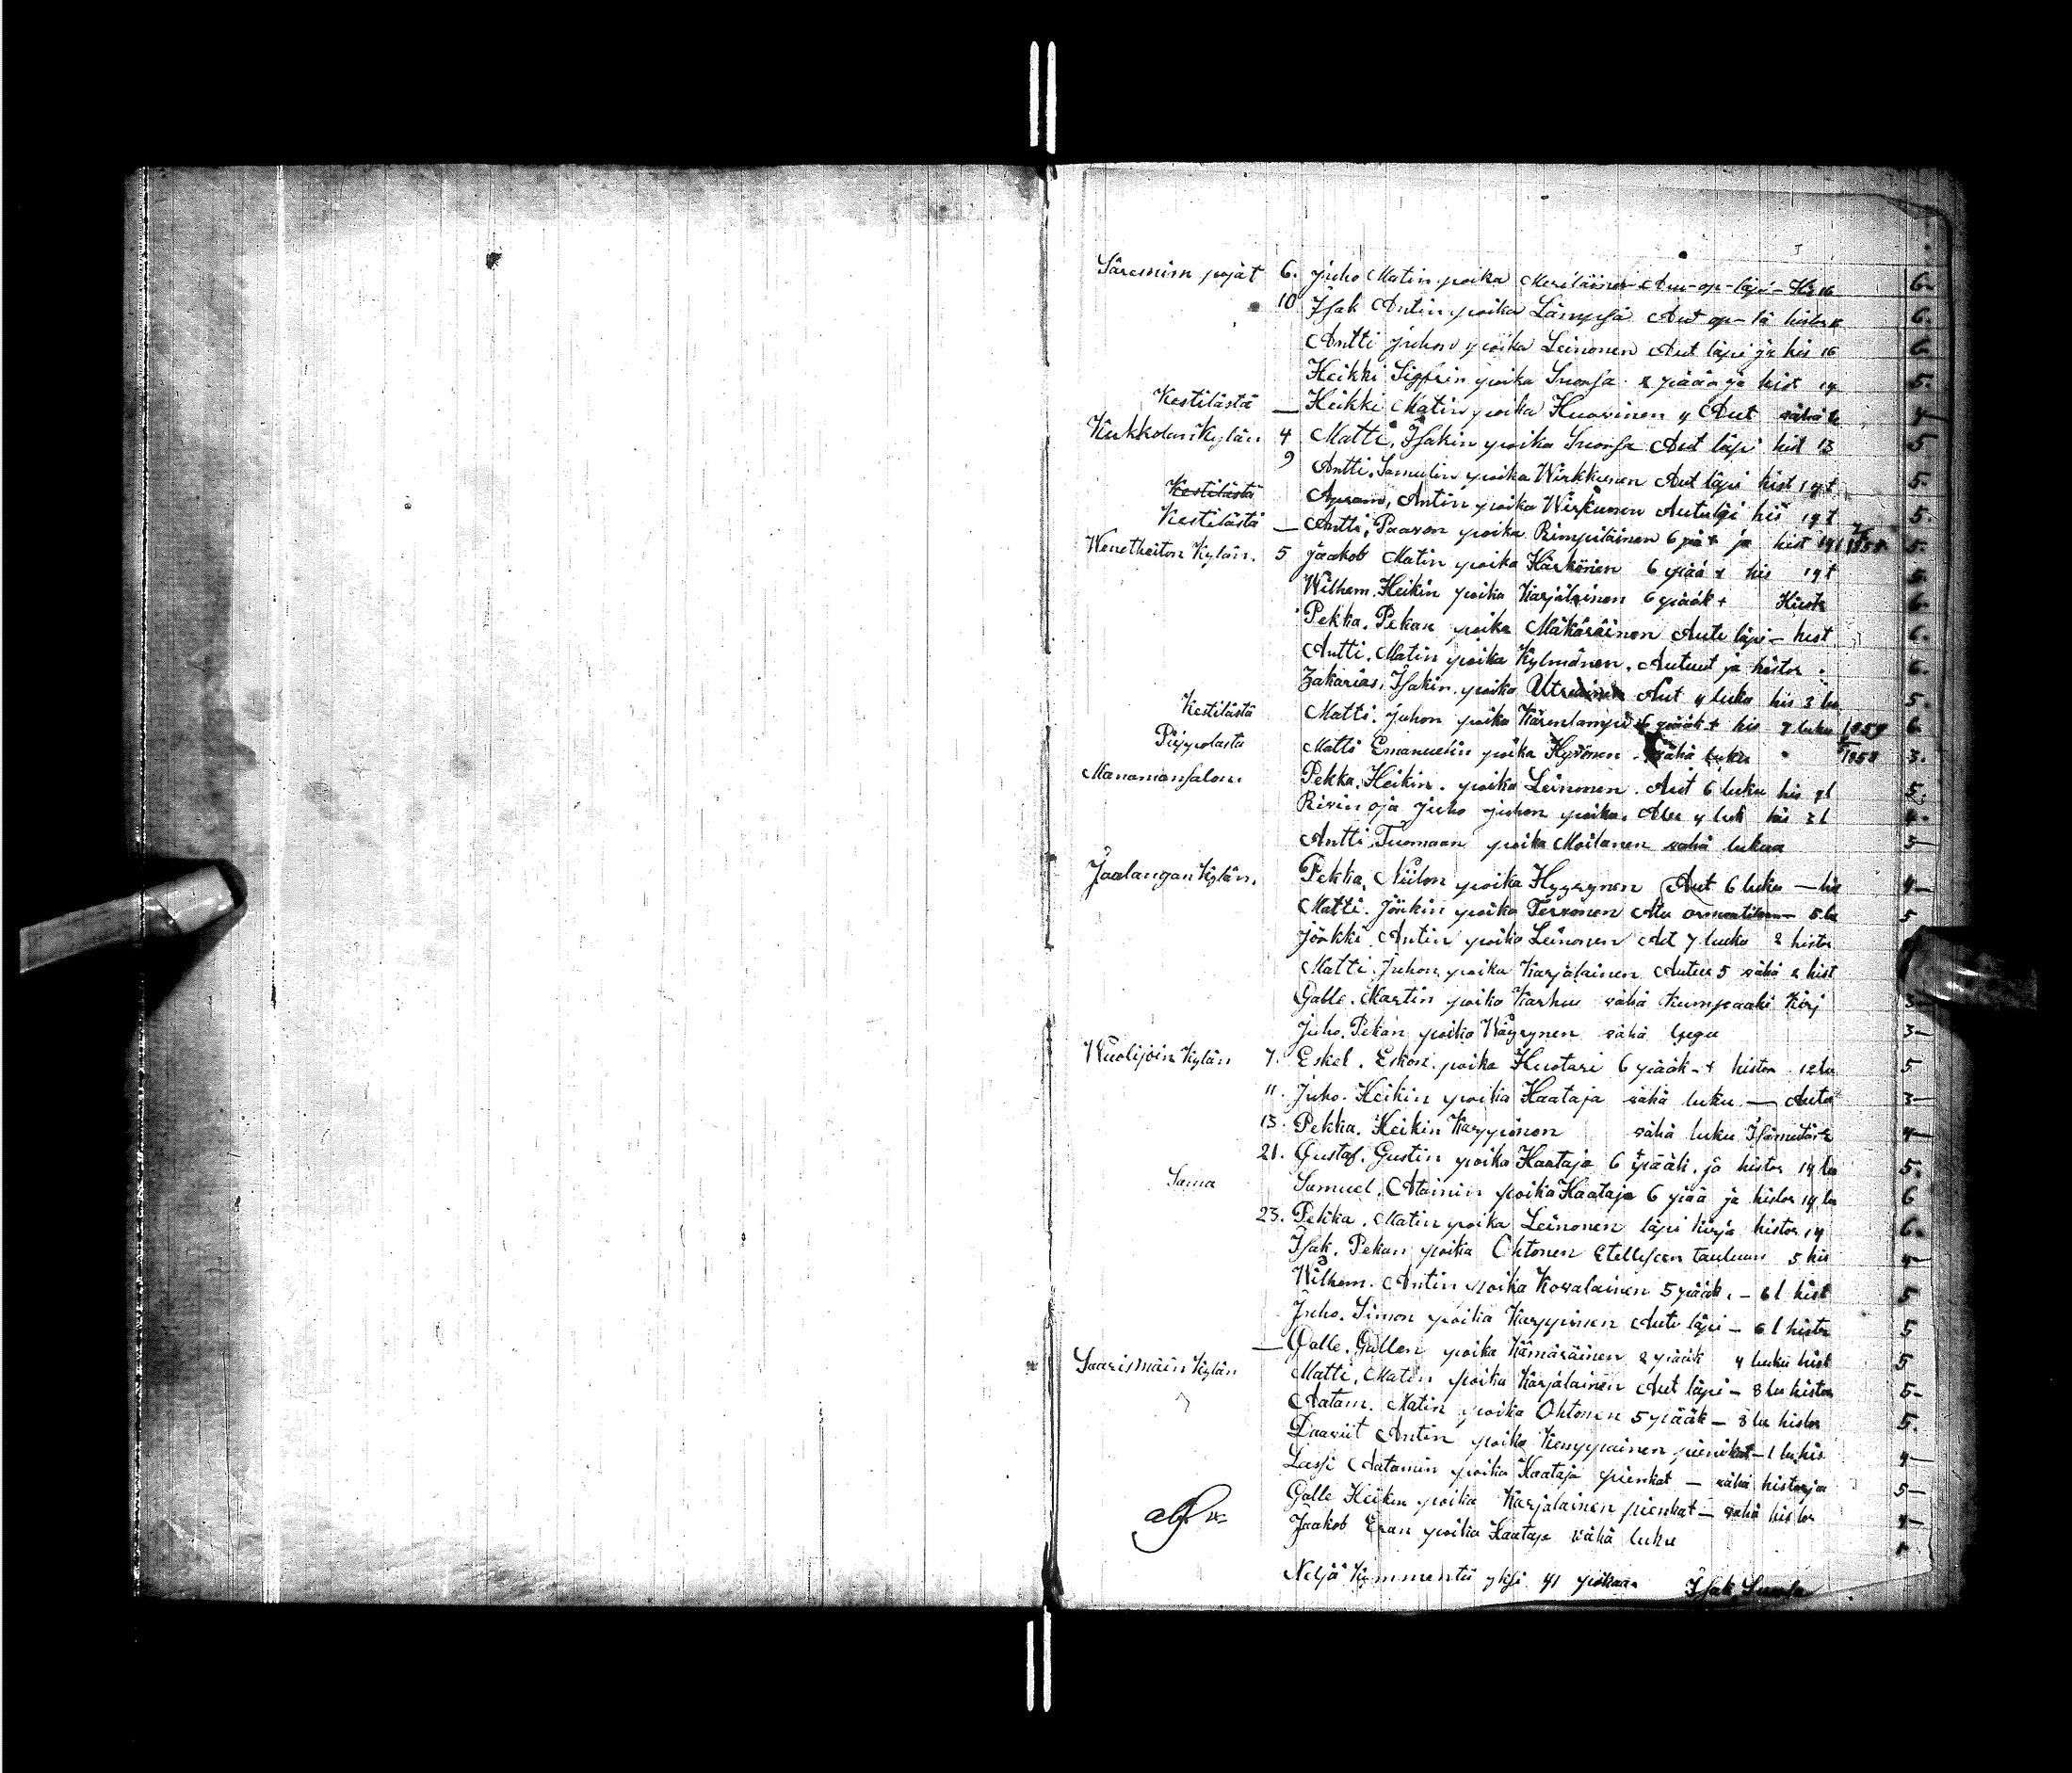 Säresnim pojat 6. Juho Matin poika Meriläinen Auu-op-läpi - His 16 6.
10 Isak Antin poika Lämpsä Aut op - lä histor 6.
Antti Juhon poika Leinonen Aut läpi ja his 16 6
Heikki Sigfrin poika Suorsa 2 pääk ja hist 14 5.
Kestilästä — Heikki Matin poika Huovinen 4 Aut vähä 4
Kukkolan Kylän 4 Matti, Isakin poika Suorsa Aut läpi hist 13 5
9 Antti, Samulin poika Wirkkunen Aut läpi hist 14 t 5.
Kestilästä Apram, Antin poika Wirkunen Autuläpi his 14 t 5.
Kestilästä — Antti, Paavon poika Rimpiläinen 6 pä + ja hist 14 l 5.
Wenetheiton Kylän. 5 Jaakob Matin poika Härkönen 6 pää + his 14 t 5
Wilhem. Heikin poika Karjalainen 6 pääk + Histo 6.
Pekka. Pekan poika Mäkäräinen Autu läpi - hist 6.
Antti. Matin poika Kylmänen. Autuut ja histor 6.
Zakarias, Isakin poika Aut 4 luku his 3 lu 5.
Kestilästä Matti. Juhon poika Kärenlampi 6 pääk + his 7 luku 1859 6
Piippolasta Matti Emanuelin poika Hyvönen vähä luku " 1858 3.
Manamansalon. Pekka. Heikin. poika Leinonen. Aut 6 luku his 7 l 5
Rivinoja Juho Juhon poika. Atu 4 luk his 3 l 4.
Antti, Tuomaan poika Moilanen vähä lukua 3
Jaalangan Kylän. Pekka, Niilon poika Hyyrynen Aut 6 luku — his 4—
Matti. Jörkin poika Tervonen Atu — 5 lu 5
Jörkki. Antin poika Leinonen Aut 7 luku 2 histor
Matti. Juhon poika Karjalainen Autuu 5 vähä 2 hist
Galle. Martin poika Karhu vähä kumpaaki kirj 3—
Juho. Pekan poika Wäyrynen vähä lugu 3—
Wuolijoin Kylän 7. Eskel. Eskon. poika Huotari 6 pääk - + histor 12 lu 5
11. Juho. Heikin poika Haataja vähä luku — Autu 3—
13. Pekka. Heikin Karppinen vähä luku 4—
21. Gustaf. Gustin poika Haataja 6 pääk. ja histor 14 lu 5.
Sama Samuel. Atamin poika Haataja 6 pää ja histor 14 lu 6
23. Pekka. Matin poika Leinonen läpi kirja histor 14 6.
Isak. Pekan poika Ohtonen Etellisen tauluun 5 his 4—
Wilhem. Antin poika Kovalainen 5 pääk. - 6 l hist 5
Juho. Simon poika Karppinen Autu läpi - 6 l histor 5
— Galle. Gallen poika Kämäräinen 2 pääk 4 luku hist 5
Saarismäin Kylän Matti, Matin poika Karjalainen Aut läpi - 8 lu histor 5-
Aatam. Matin poika Ohtonen 5 pääk - 8 lu histor 5.
Daaviit Antin poika Kemppainen pienikat - 1 lu his 4—
Lassi Aatamin poika Haataja pienkat — vähä historja 5—
Galle Heikin poika Karjalainen pienkat — vähä histor 4—
Jaakob Eran poika Haataja vähä luku
Neljä Kymmentä yksi 41 poikaa. Isak Suorsa